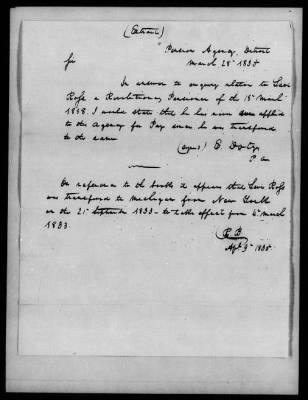 (Extract)
Pension Agency, Detroit
March 28th 1838
Sir
In answer to enquiry relative to Levi
Ross a Revolutionary Pensioner of the 18th March
1818. I would state that he has never applied
to the Agency for Pay since he was transferred
to the same
(signed) E. Doty
P. Ag
On reference to the books it appears that Levi Ross
was transferred to Michigan from New York
on the 21st September 1833 - to take effect from 4th March
1833.
Apl 9th 1838